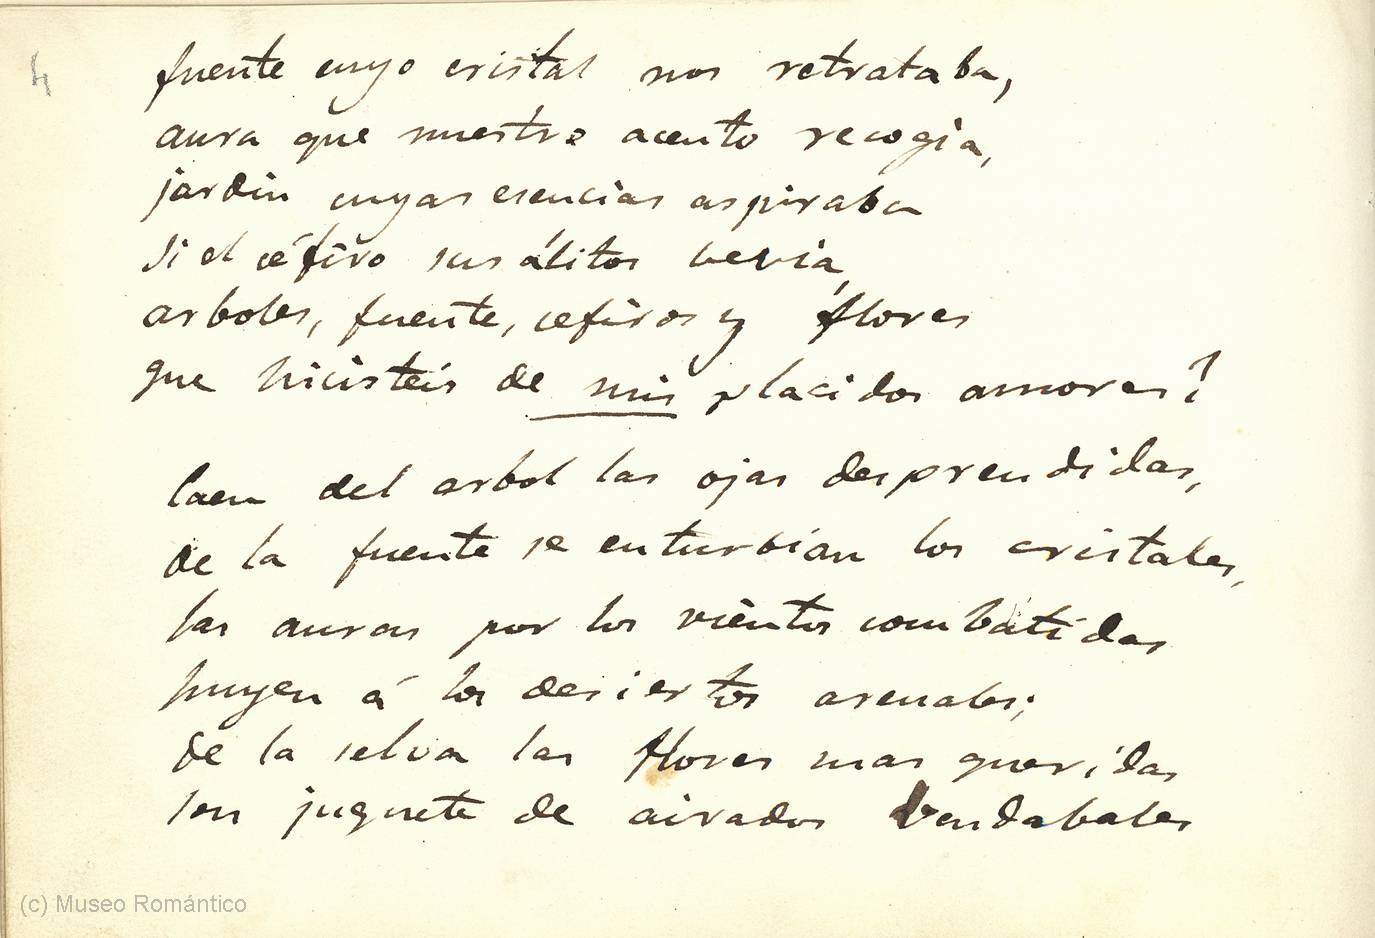 4
fuente cuyo cristal nos retrataba,
aura que nuestro acento recogia,
jardin cuyas esencias aspiraba
si el céfiro sus álitos bevia,
arboles, fuente, cefiros y flores
que hicisteis de mis placidos amores?
Caen del arbol las ojas desprendidas,
de la fuente se enturbian los cristales,
las auras por los vientos combatidas
huyen á los desiertos arenales;
de la selva las flores mas queridas
son juguete de airados vendabales
(c) Museo Romántico